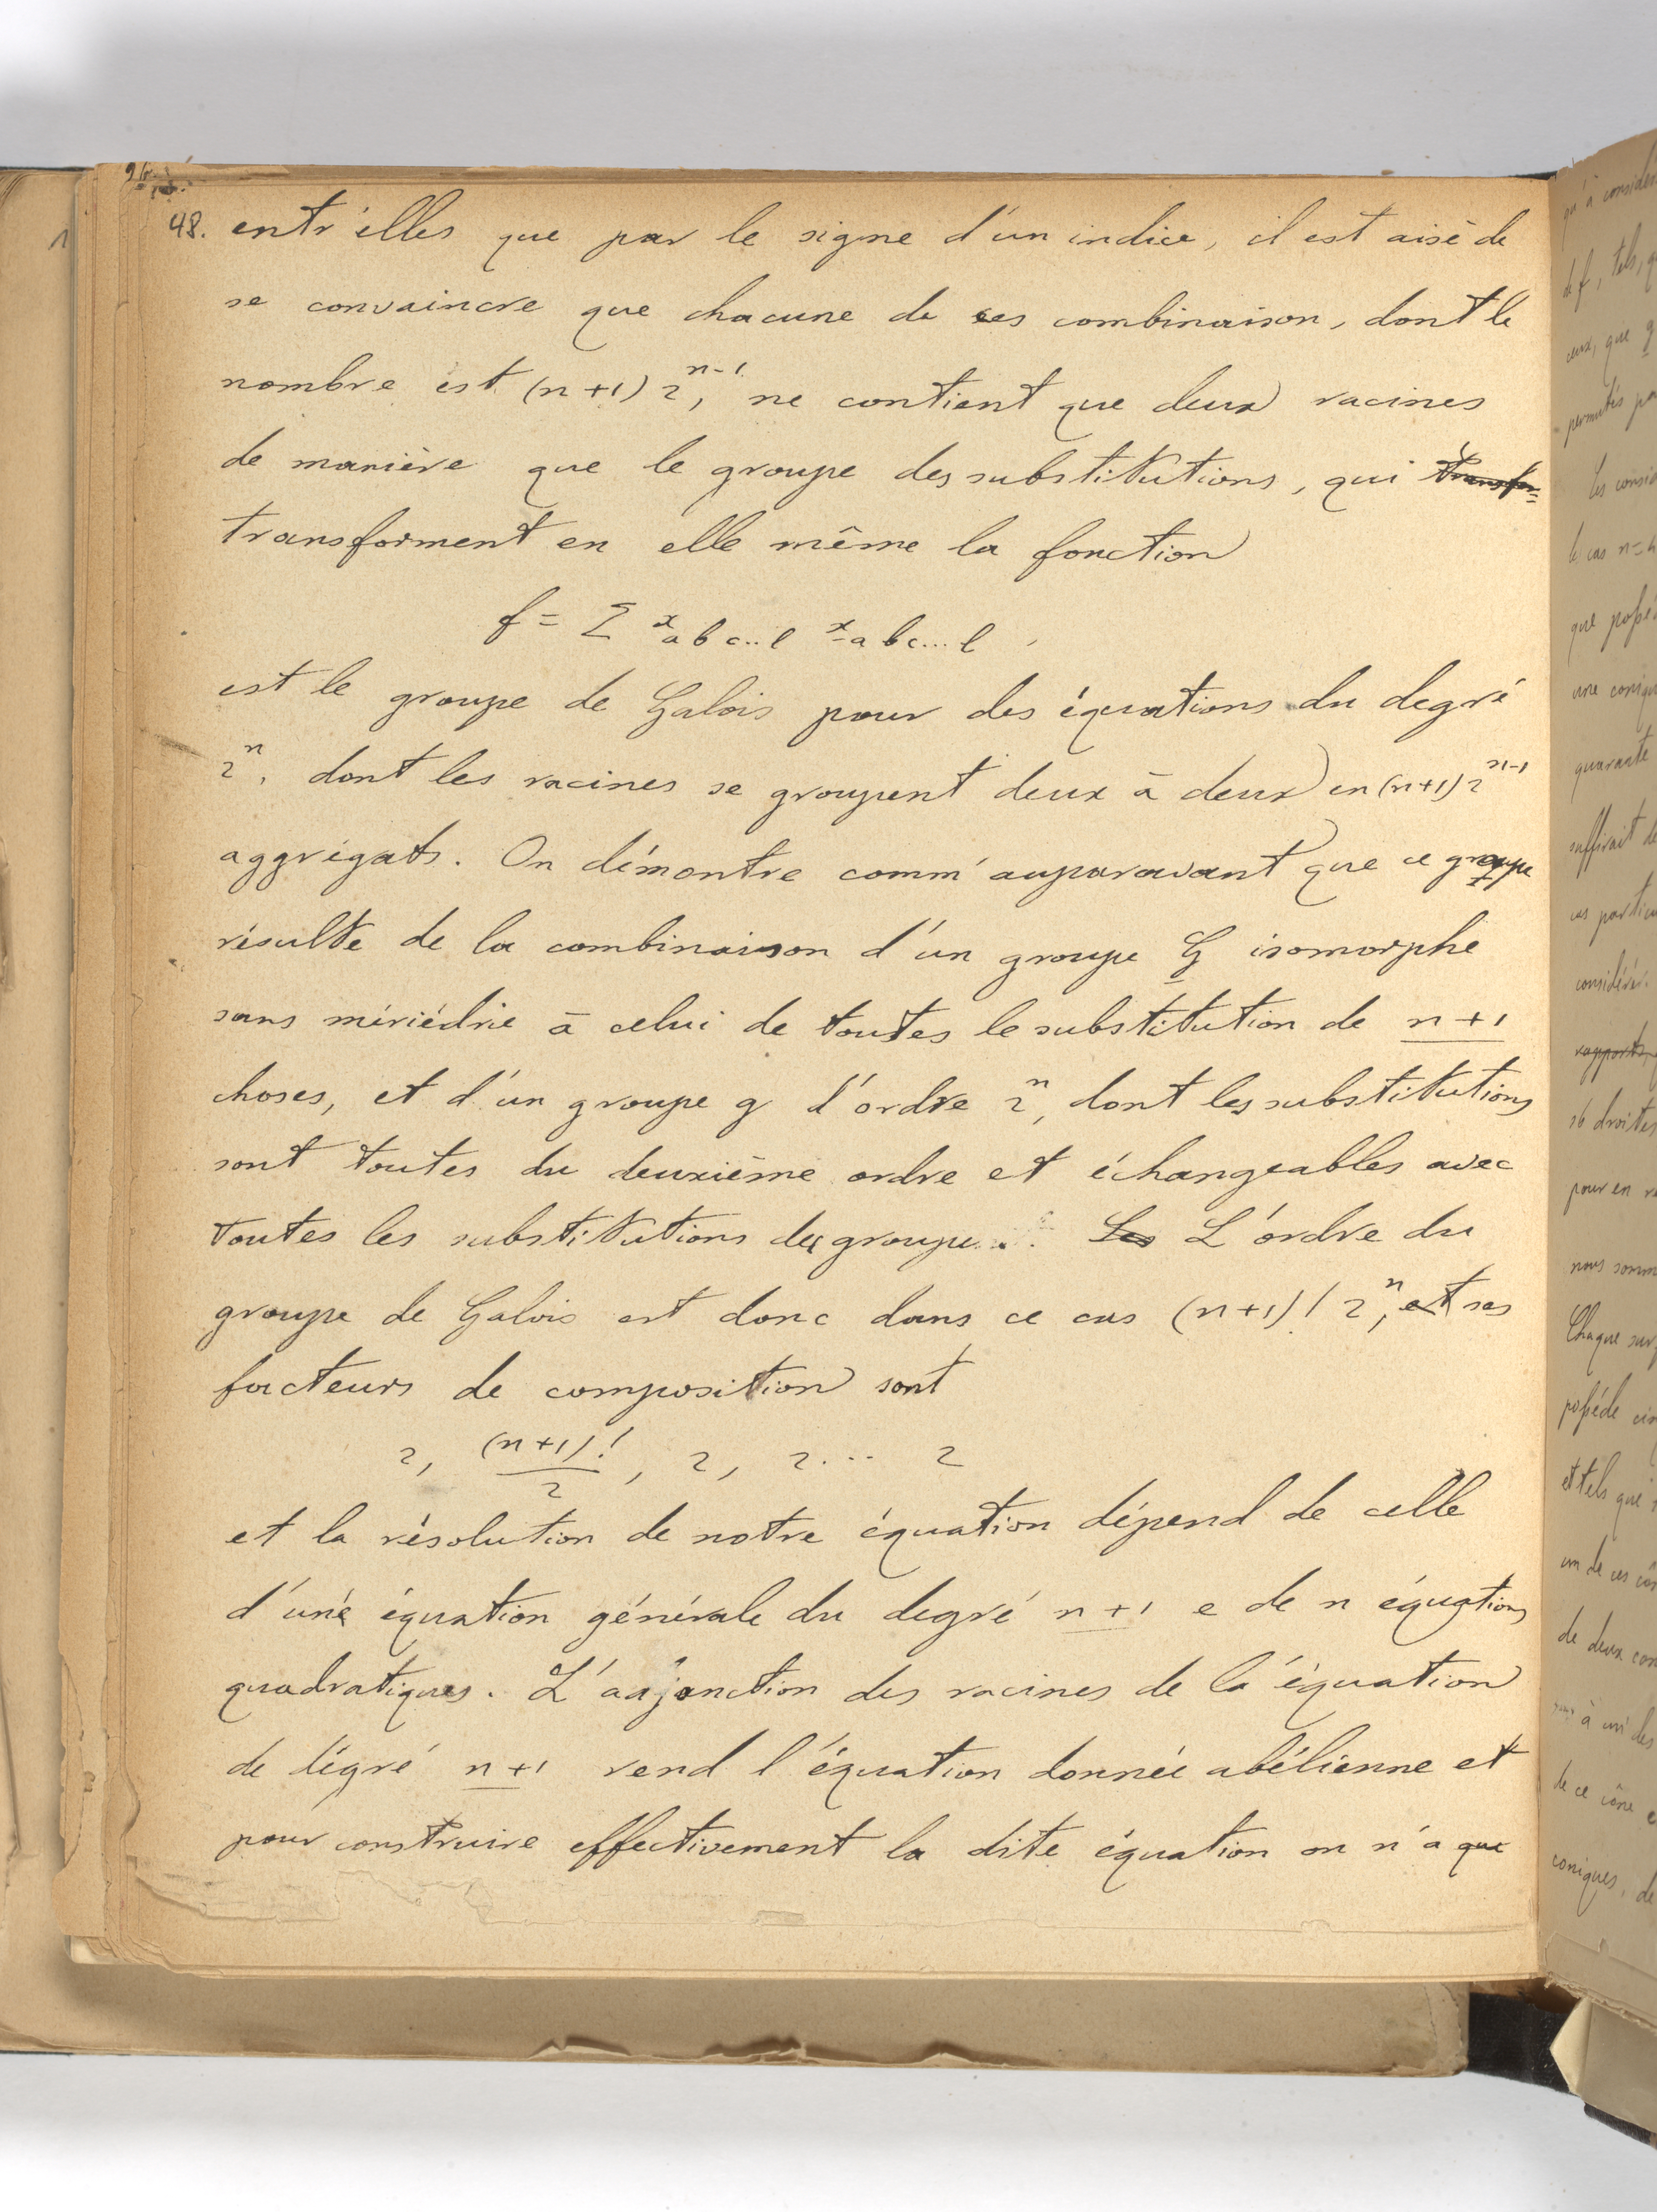 48. entr'elles que par le signe d'un indice, il est aisé de
se convaincre que chacune de ces combinaison, dont le
nombre est (n+1) 2^{n-1}, ne contient que deux racines
de manière que le groupe des substitutions, qui transfor=
transforment en elle même la fonction
f = Σ x_{abc..l} x_{-abc...l},
est le groupe de Galois pour des équations du degré
2^n, dont les racines se groupent deux à deux en (n+1) 2^{n-1}
aggrégats. On démontre comm' auparavant que ce groupe
résulte de la combinaison d'un groupe G isomorphe
sans mériédrie à celui de toutes le substitution de n+1
choses, et d'un groupe g d'ordre 2^n, dont les substitutions
sont toutes du deuxième ordre et échangeables avec
toutes les substitutions du groupe. Les L'ordre du
groupe de Galois est donc dans ce cas (n+1)! 2^n, et ses
facteurs de composition sont
2, (n+1)!/2, 2, 2... 2
et la résolution de notre équation dépend de celle
d'une équation générale du degré n+1 e de n équations
quadratiques. L'adjonction des racines de la équation
de dégré n+1 rend l'équation donnée abélienne et
pour construire effectivement la dite équation on n'a que
qu'à considé
de f, tels, q
ceux, que g
permutés pa
le cas n=4
une coniqu
quarante
suffirait de
cas particu
considérer.
16 droites
pour en
nous somm
Chaque sur
possède
et tels que
un de ces cô
de deux con
à un des
de ce cône e
coniques, de